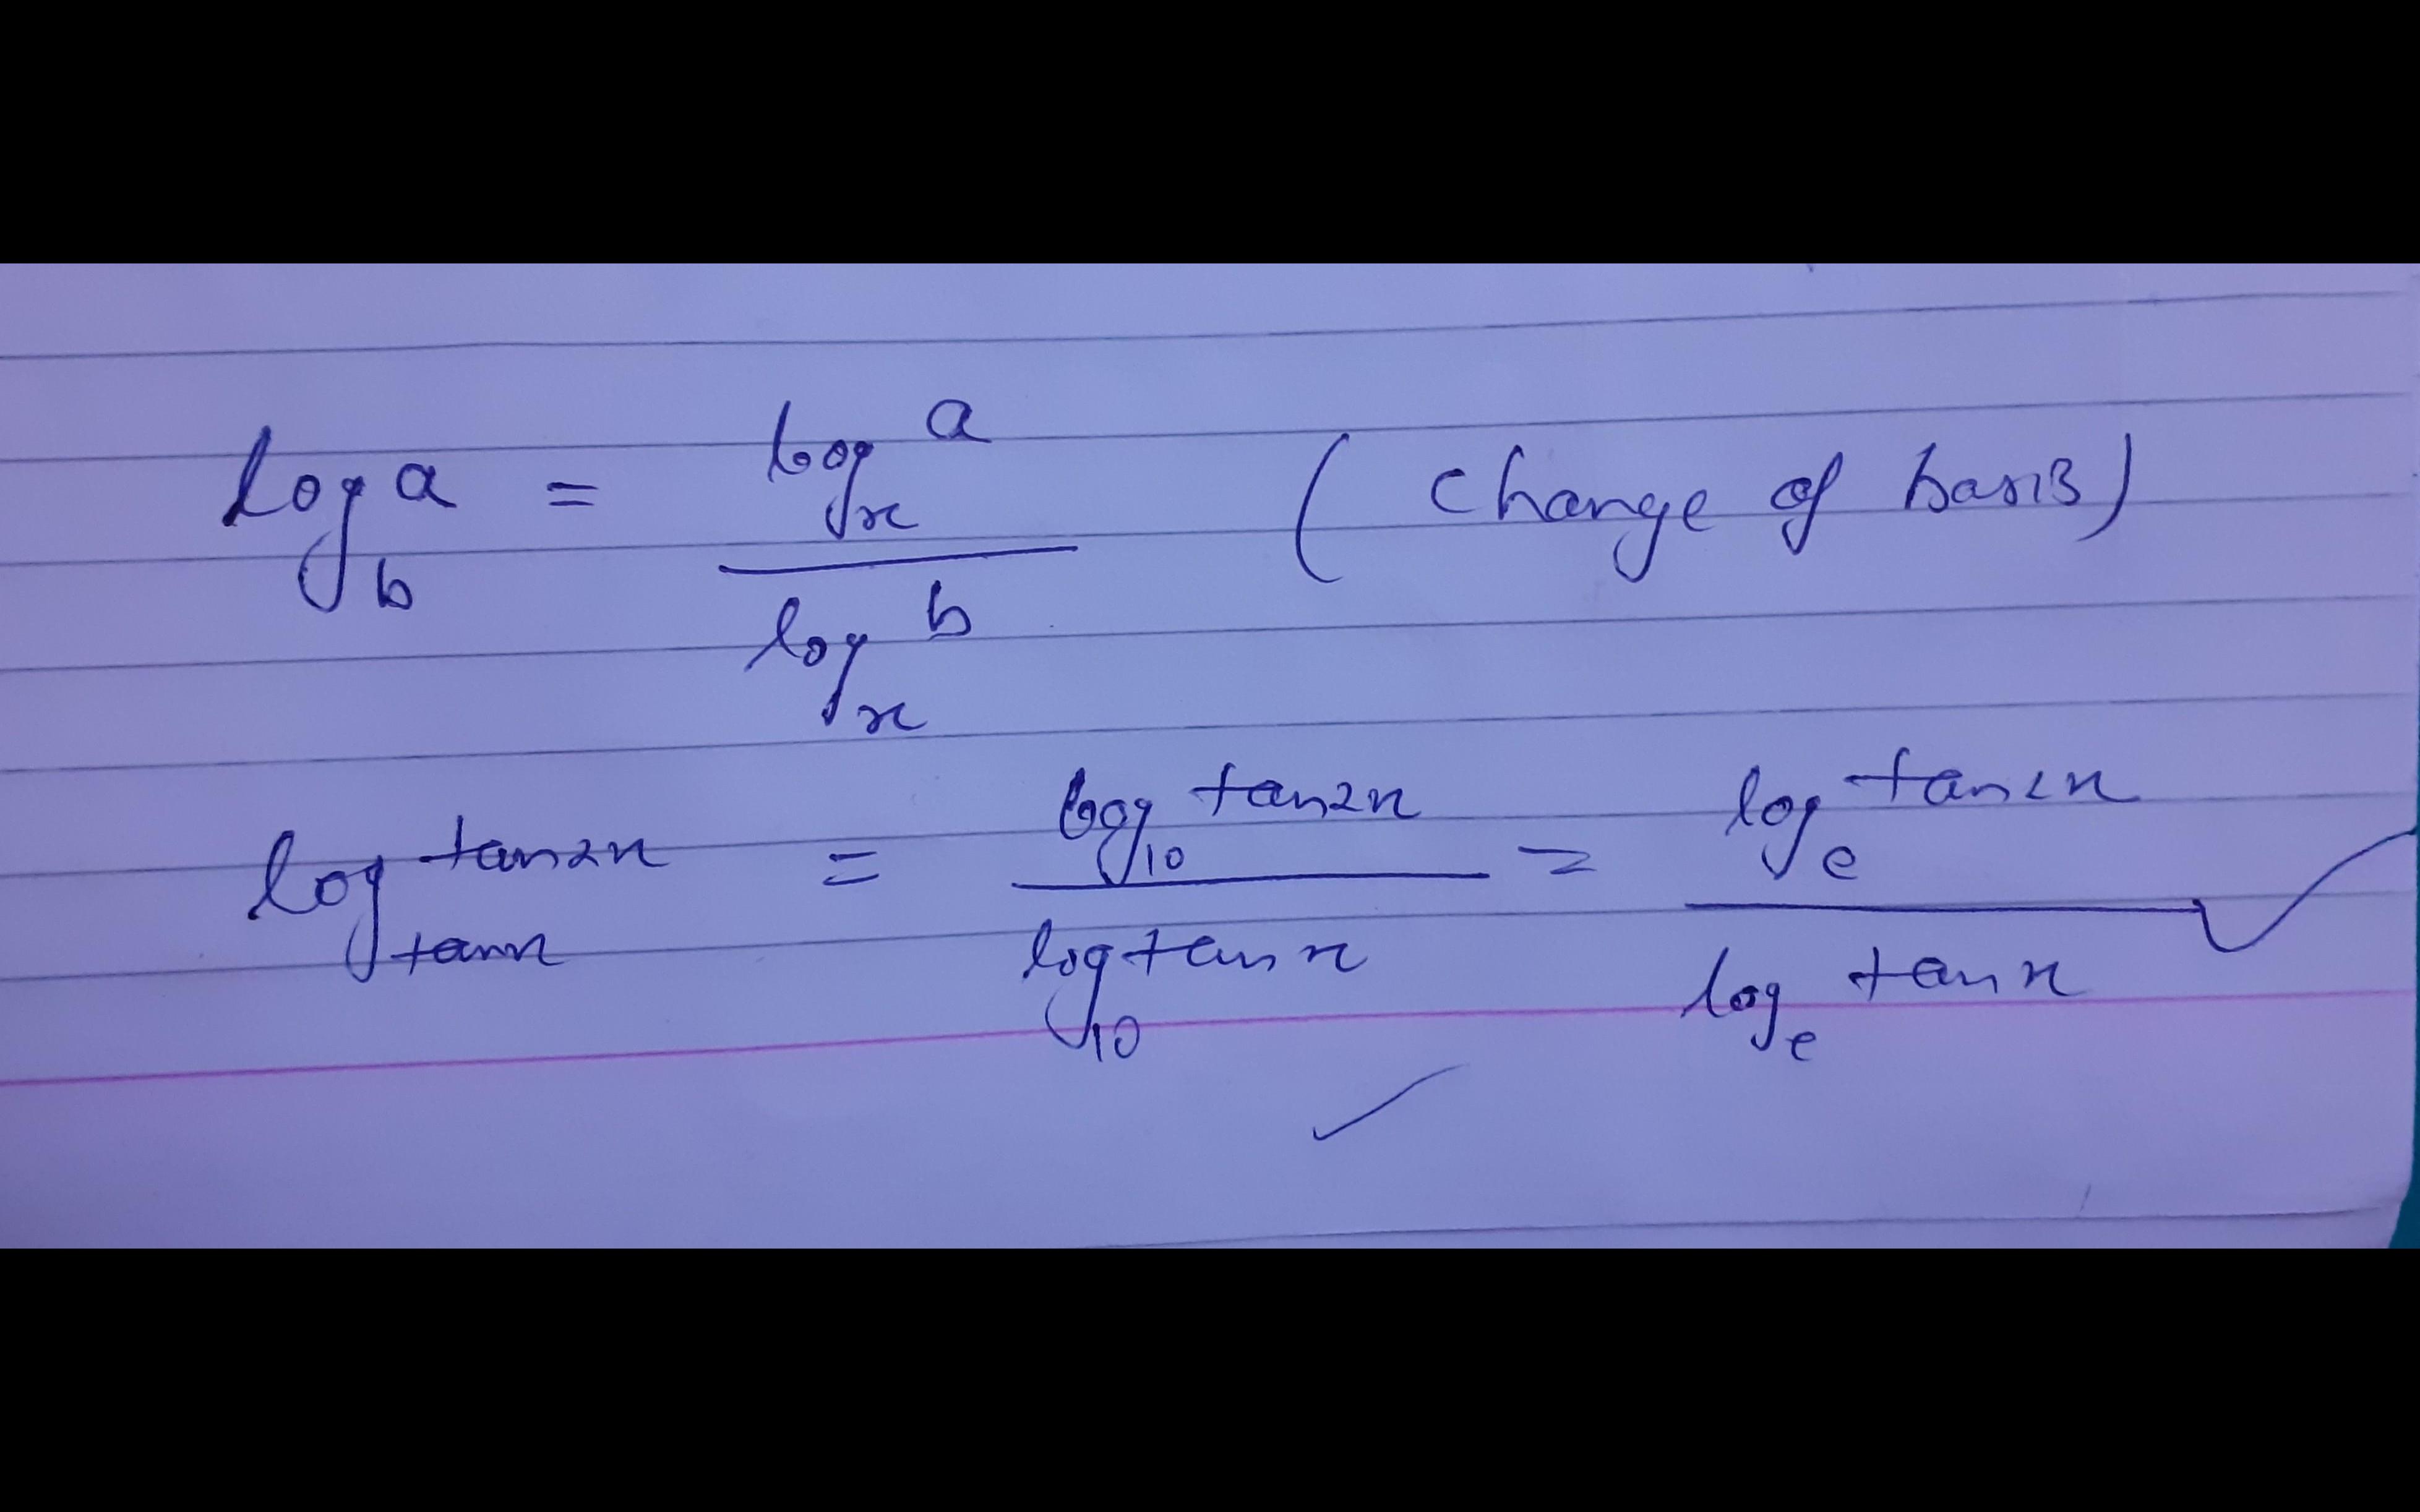 log_b a = log_x a / log_x b (change of basis)
log_tanx tan2x = log_10 tan2x / log_10 tanx = log_e tan2x / log_e tanx